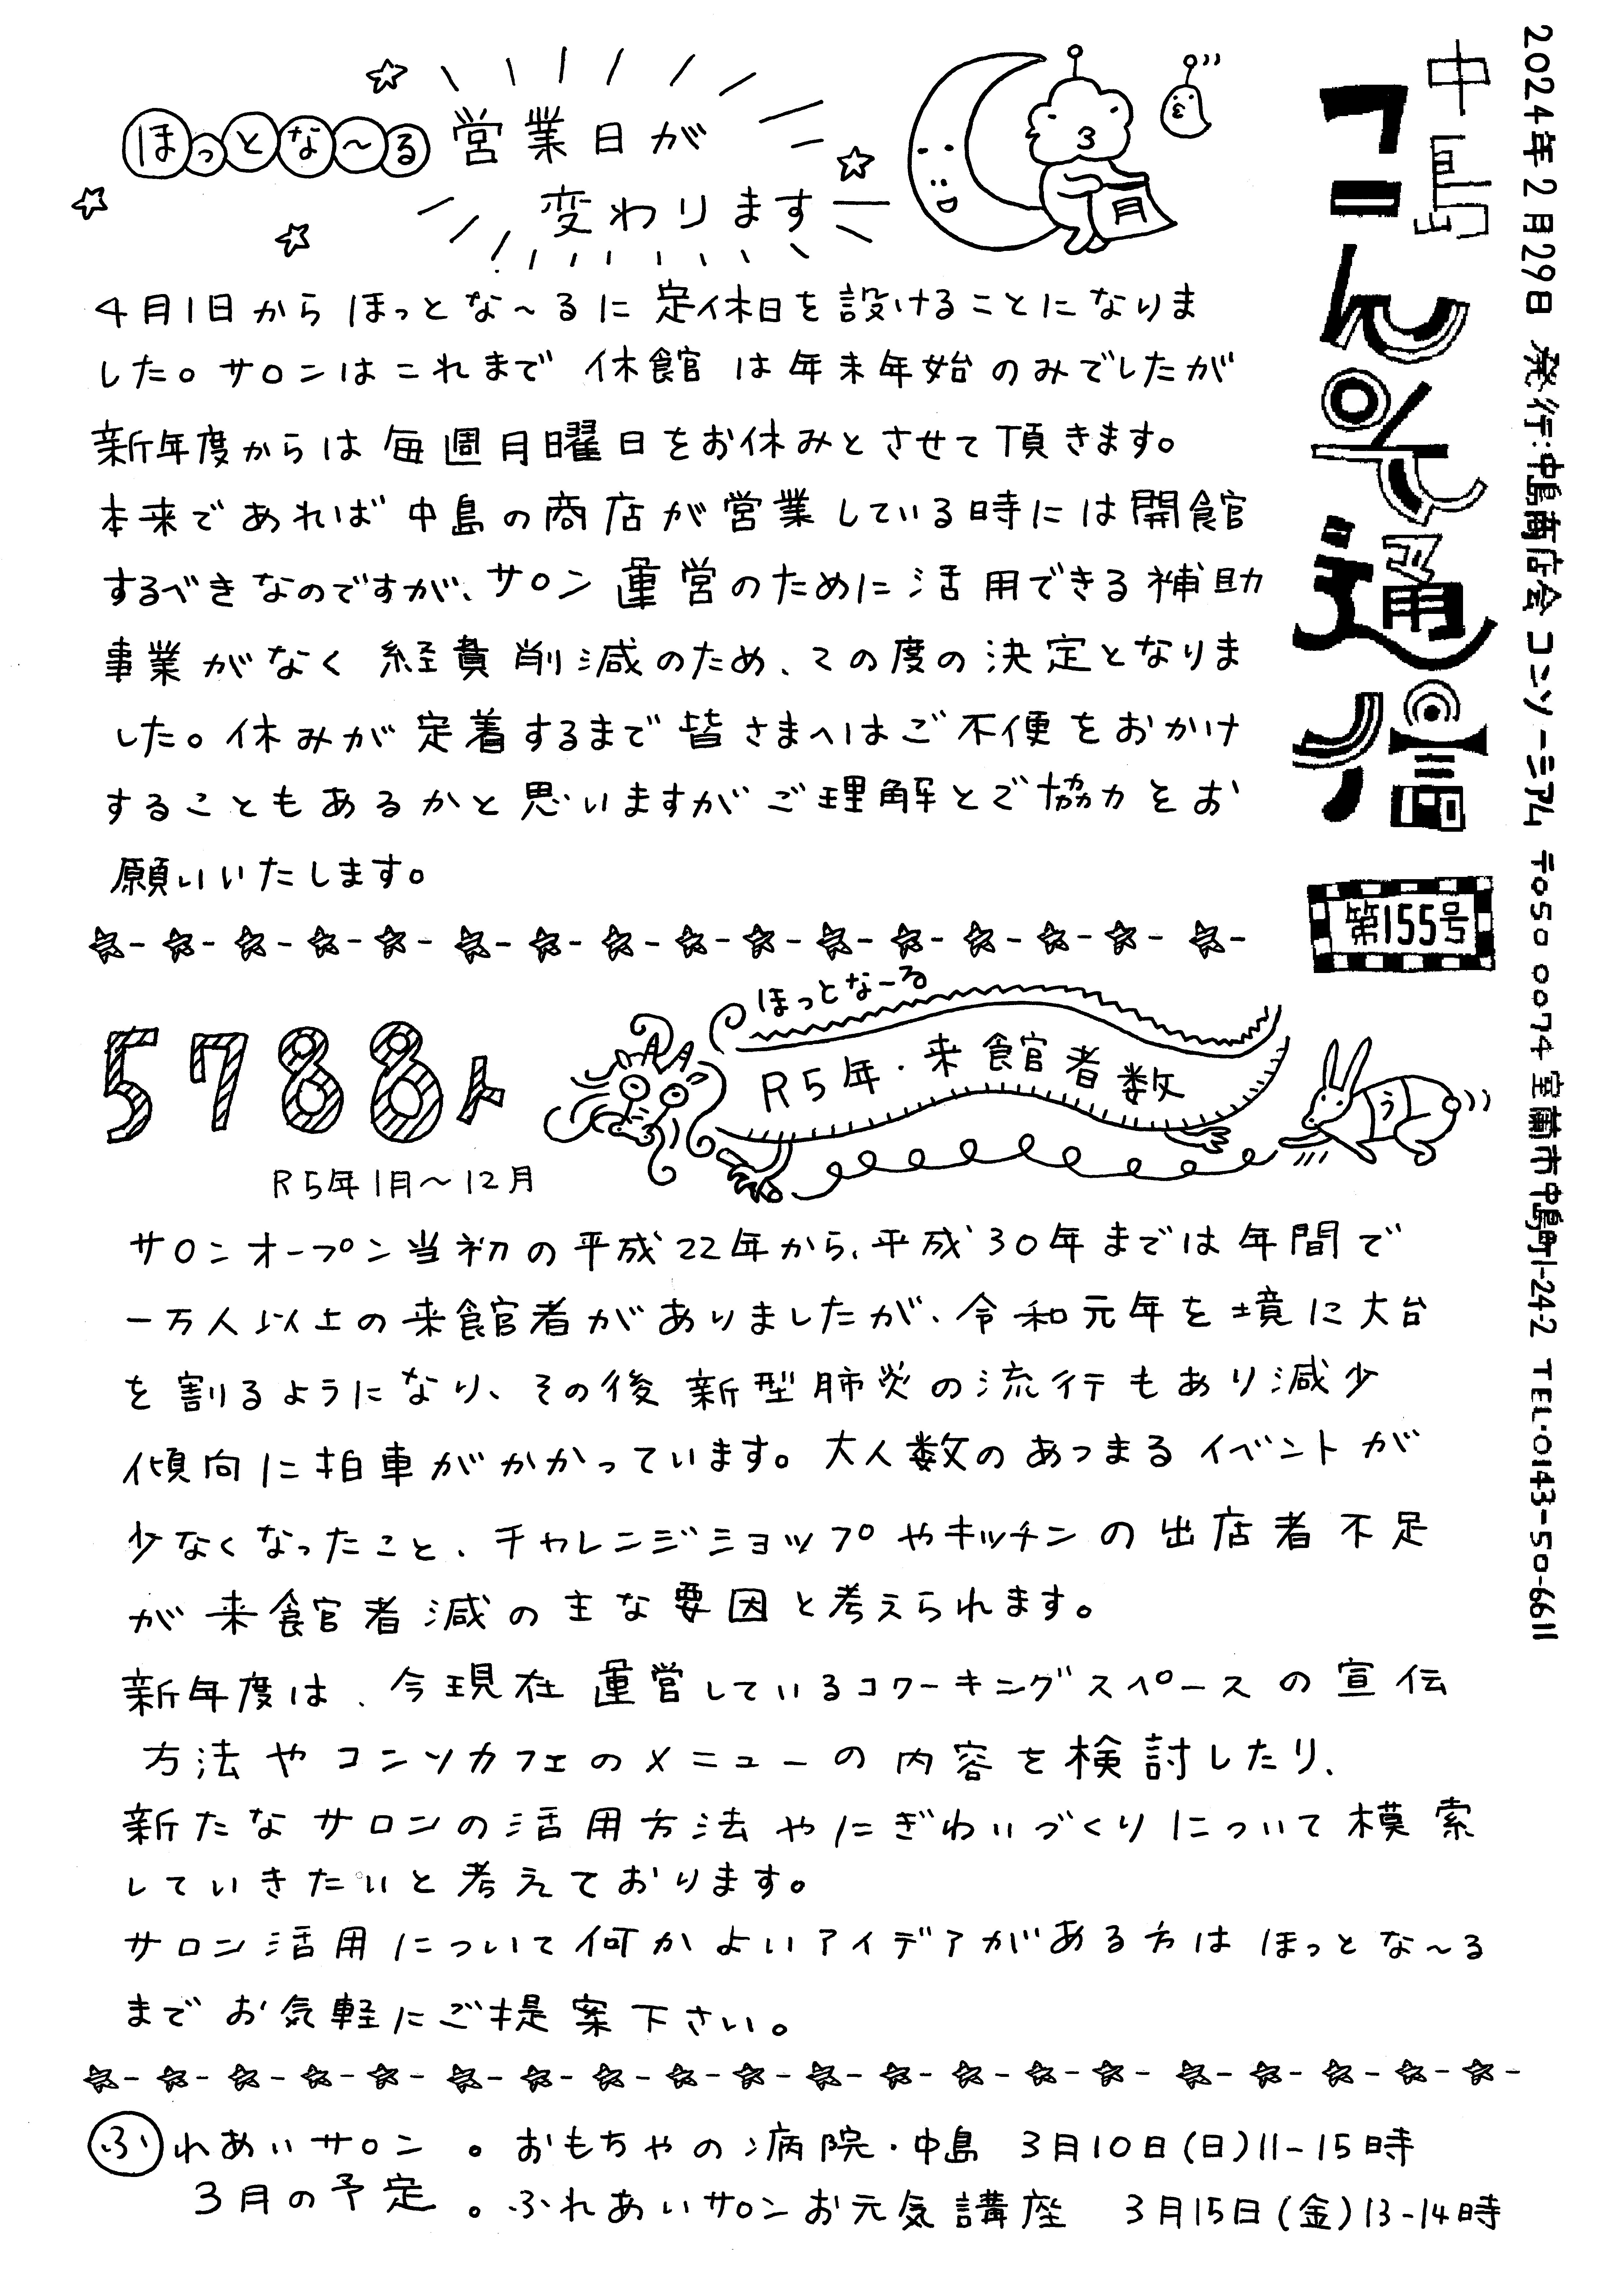 2024年2月29日 発行:中島商店会コンソーシアム 〒050 0074 室蘭市中島町1-24-2 TEL・0143-50-6611
中島
コンソ通信
第155号
ほっとな〜る 営業日が
変わります
月
4月1日からほっとな〜るに定休日を設けることになりま
した。サロンはこれまで休館は年末年始のみでしたが
新年度からは毎週月曜日をお休みとさせて頂きます。
本来であれば中島の商店が営業している時には開館
するべきなのですが、サロン運営のために活用できる補助
事業がなく経費削減のため、この度の決定となりま
した。休みが定着するまで皆さまへはご不便をおかけ
することもあるかと思いますがご理解とご協力をお
願いいたします。
5788人
R5年1月〜12月
ほっとな〜る
R5年・来館者数
う
サロンオープン当初の平成22年から、平成30年までは年間で
一万人以上の来館者がありましたが、令和元年を境に大台
を割るようになり、その後新型肺炎の流行もあり減少
傾向に拍車がかかっています。大人数のあつまるイベントが
少なくなったこと、チャレンジショップやキッチンの出店者不足
が来館者減の主な要因と考えられます。
新年度は、今現在運営しているコワーキングスペースの宣伝
方法やコンソカフェのメニューの内容を検討したり、
新たなサロンの活用方法やにぎわいづくりについて模索
していきたいと考えております。
サロン活用について何かよいアイデアがある方はほっとな〜る
までお気軽にご提案下さい。
ふれあいサロン 。おもちゃの病院・中島 3月10日(日)11-15時
3月の予定 。ふれあいサロンお元気講座 3月15日(金)13-14時